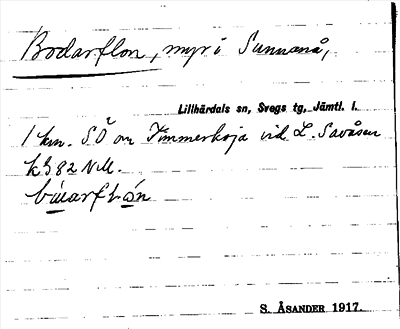 Bodarflon, myr i Sunnanå,
Lillhärdals sn, Svegs tg, Jämtl. l.
1 km. SÖ om Timmerkoja vid L. Savåsen
k 382 NM.
S. ÅSANDER 1917.